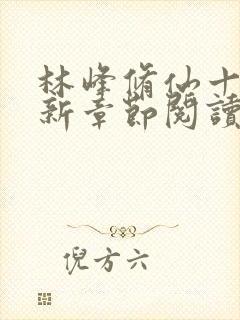 林峰脩仙十
新章節閱讀
倪方六